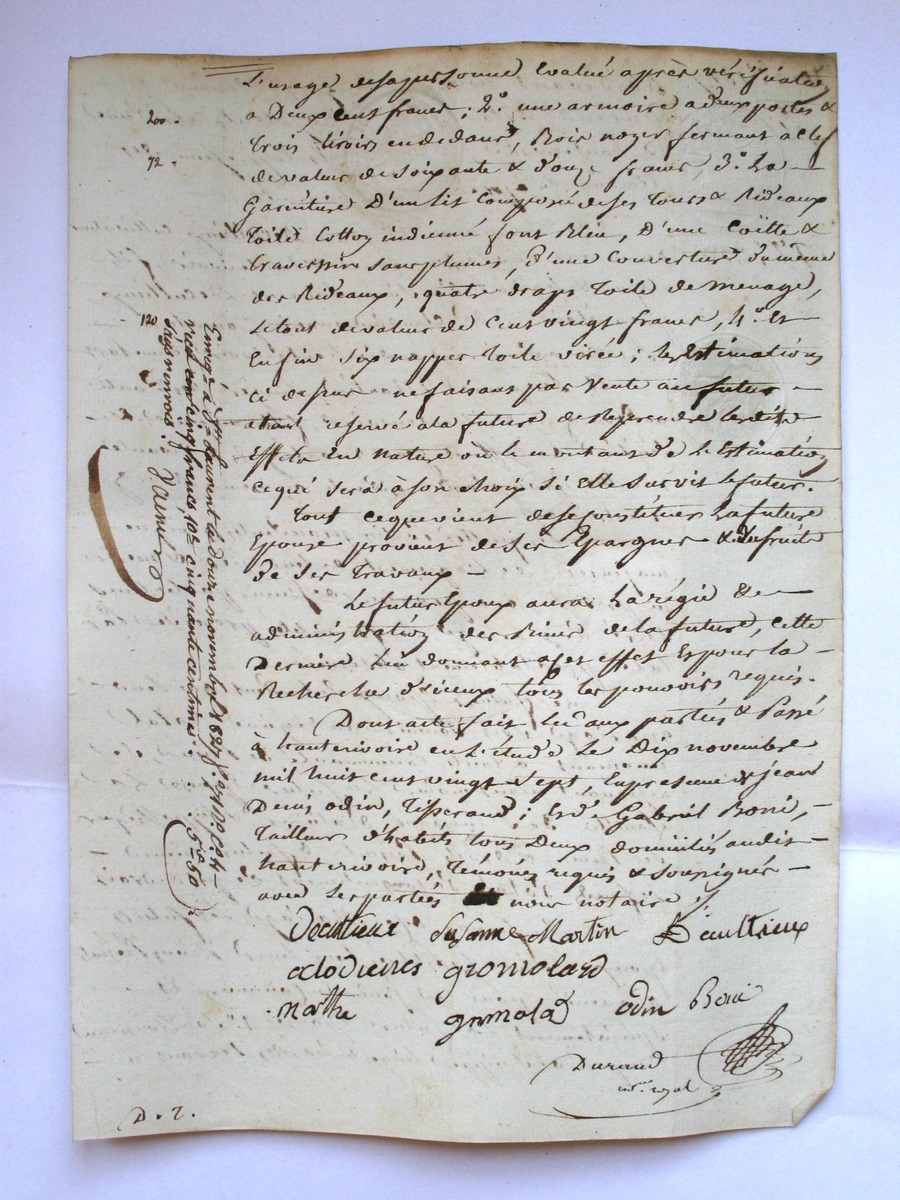 L'usage de sa personne Evalué après vérification
200.
a Deux Cent francs ; 2.º une armoire a deux portes &
trois tiroirs en dedans, Bois noyer fermant a Clef
72.
de valeur de soixante & Douze francs, 3.º La
Garniture D'un Lit Composé de ses tours & Rideaux
toile Cotton indienne font Bleu, D'une Coëtte &
traversin sans plumes, D'une Couverture du même
des Rideaux, quatre draps toile de menage,
120
Le tout de valeur de Cent vingt francs, 4.º Et
Enfin six nappes toile ; les Estimations
Ci dessus ne faisant pas Vente au futur
étant reservé a la future de Reprendre lesdits
Effets En Nature ou le montant de L'Estimation
ce qui sera à son choix si Elle survit le futur.
Tout ce que vient de se Constituer La future
Epouse provient de ses Epargnes & du fruit
de ses travaux –
Le futur Epoux aura La régie &
administration des Biens de la future, cette
Derniere Lui donnant a cet effet Et pour la
Recherche d'iceux tous les pouvoirs requis.
Dont acte fait Lu aux parties & Passé
à hauterivoire en L'étude Le Dix novembre
mil huit cent vingt Sept, En presence de jean
Denis odin, Tisserand ; Et de Gabriel Boni,
Tailleur d'habits tous Deux domiciliés audit
hauterivoire, Témoins requis & soussignés
avec Les parties nous notaire
Susanne Martin
gromolard
odin Boni
Durand
n.re royal
D. 7.
Enreg.é à S.t Laurent de novembre 1827 f.º
reçu cinq francs, 10.e cinquante centimes.
5.f 50